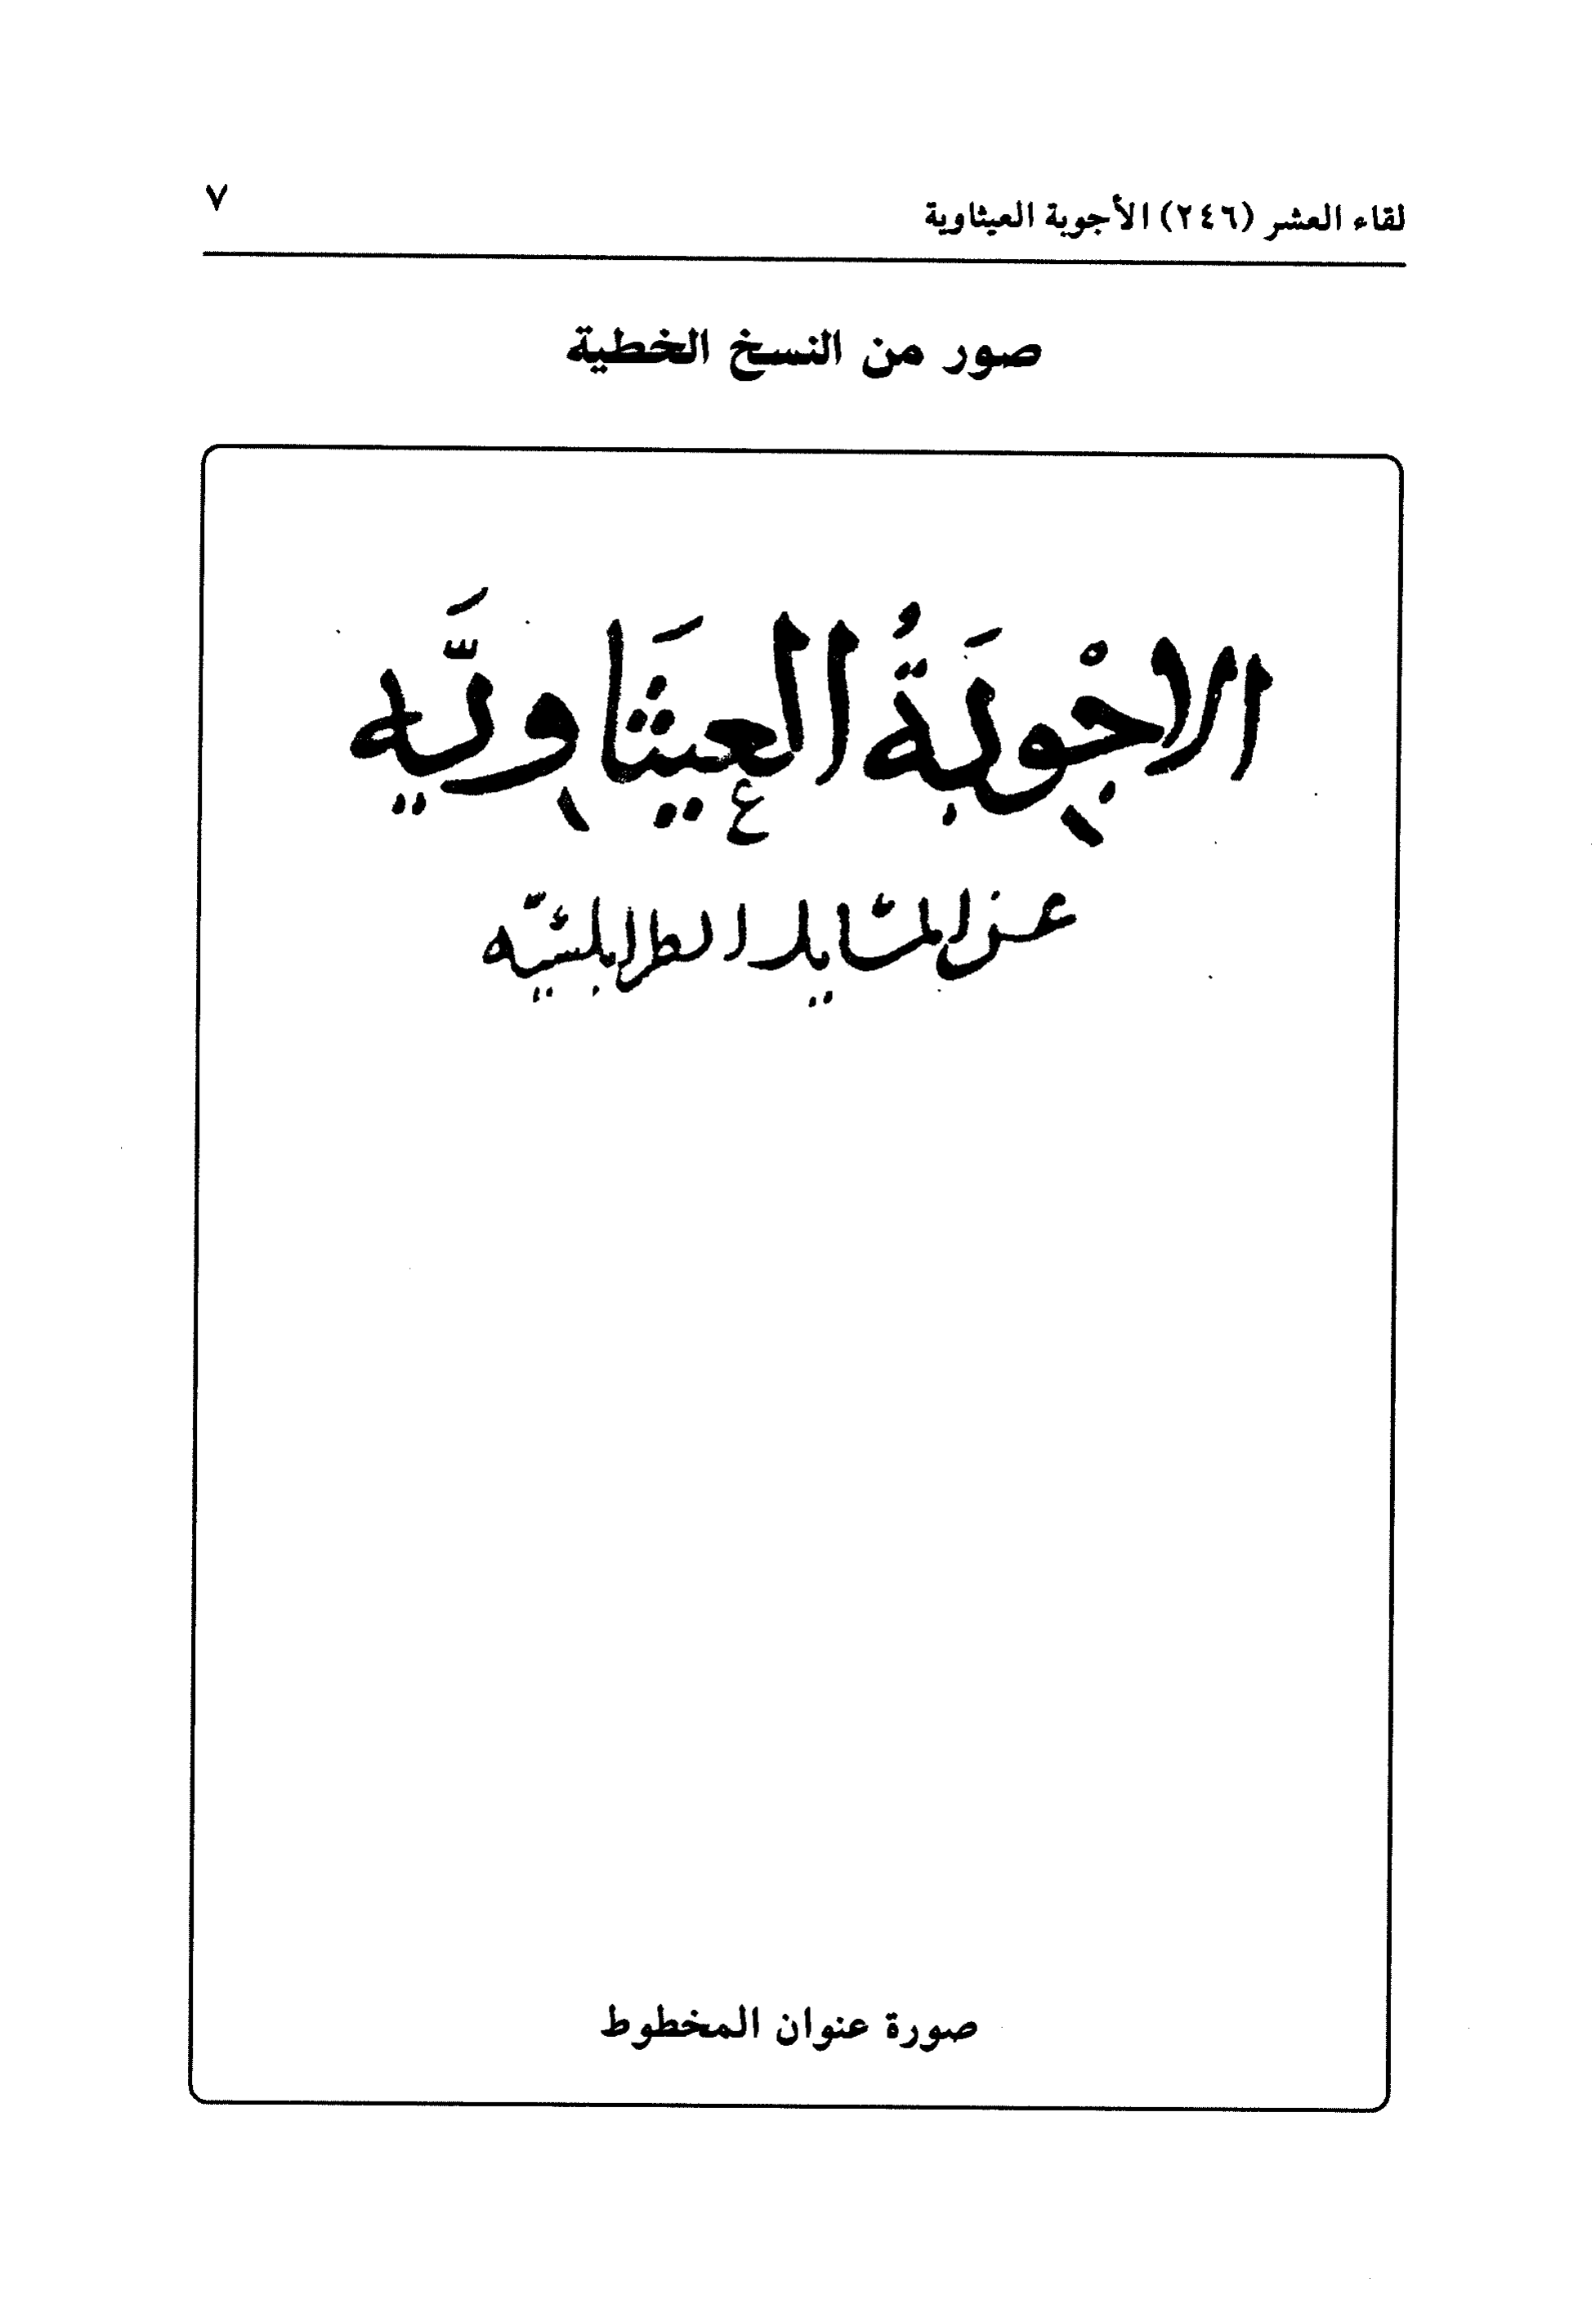 لقاء العشر (٢٤٦) الأجوبة العيثاوية ٧
صور من النسخ الخطية
الاجْوِبَةُ العيثَاويَّه
عن المسايل الطرابلسيه
صورة عنوان المخطوط